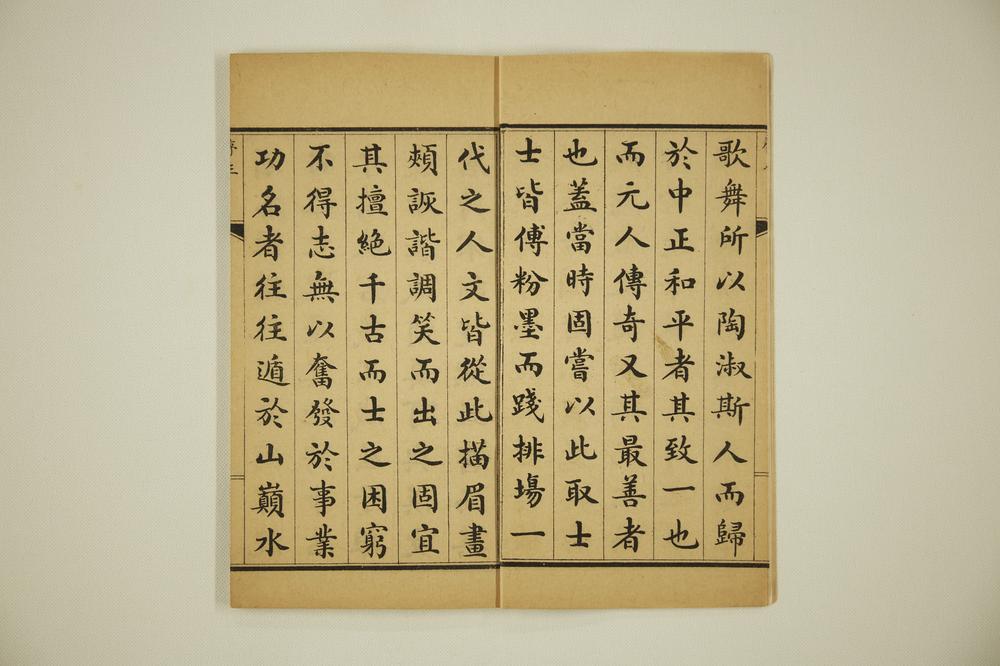 歌舞所以陶淑斯人而歸
於中正和平者其致一也
而元人傳奇又其最善者
也蓋當時固嘗以此取士
士皆傅粉墨而踐排場一
代之人文皆從此描眉畫
頰詼諧調笑而出之固宜
其擅絕千古而士之困窮
不得志無以奮發於事業
功名者往往遁於山巔水